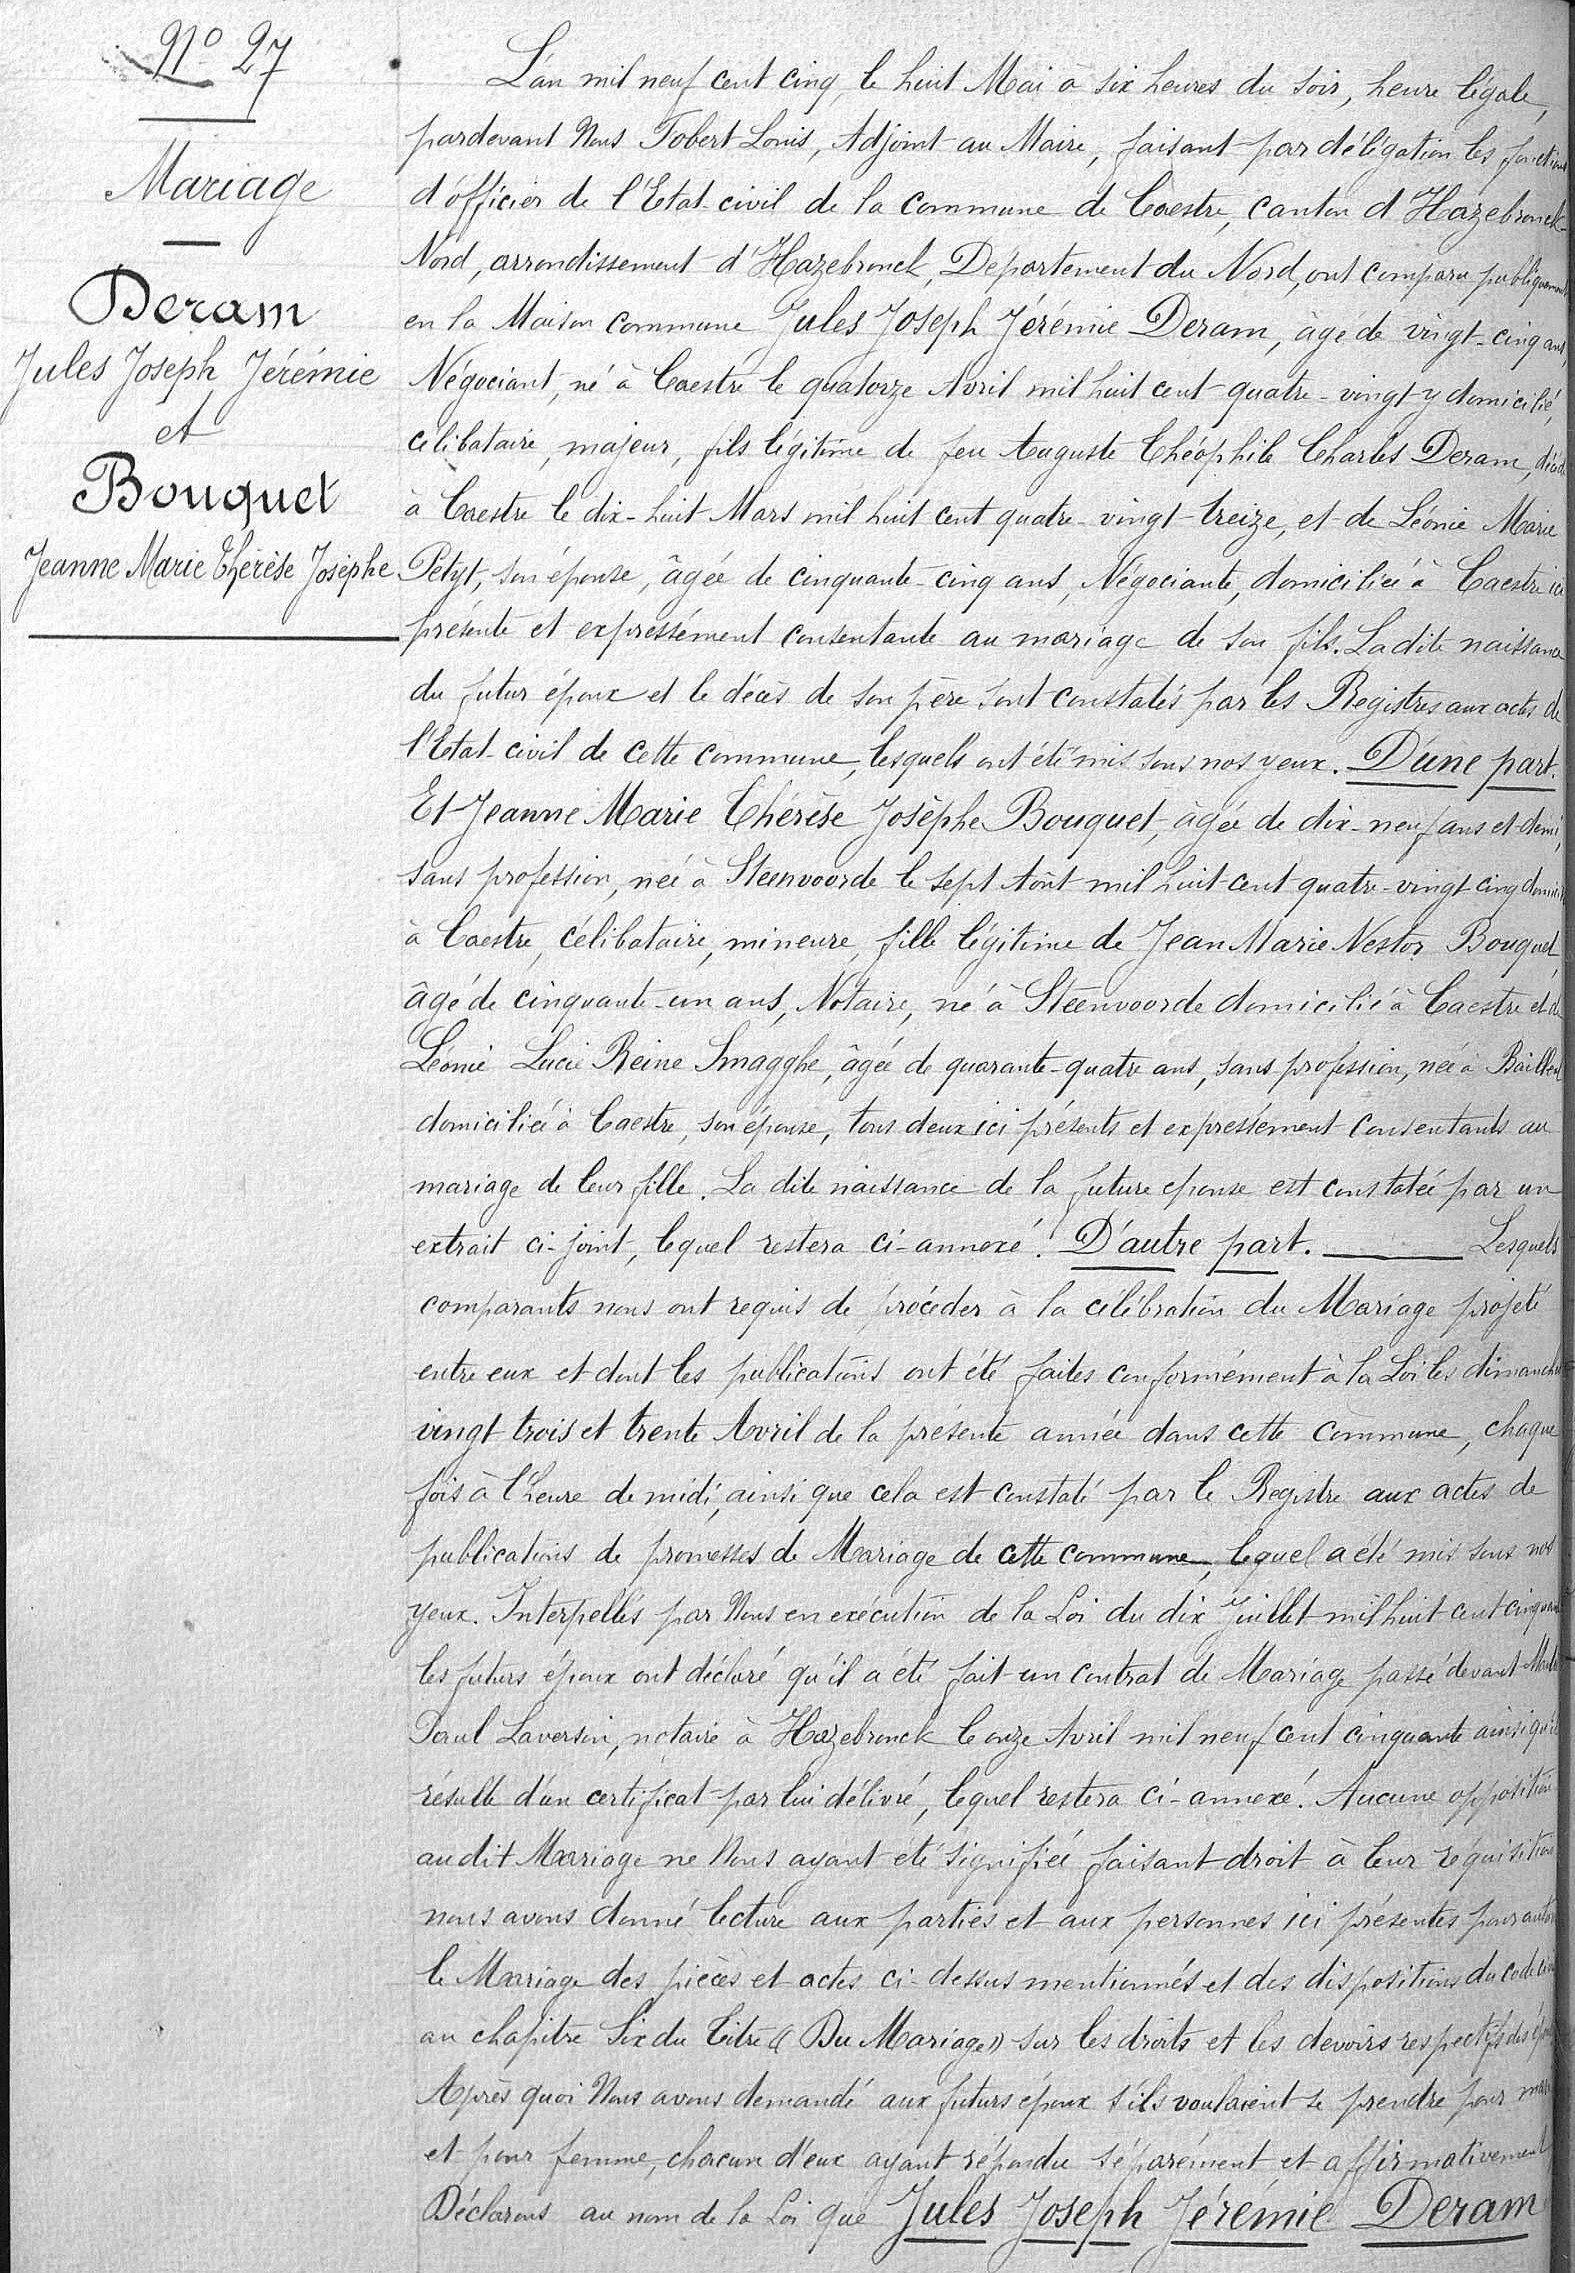 N° 27
Mariage
Deram
Jules Joseph Jérémie
et
Bouquet
Jeanne Marie Thérèse Josèphe
L'an mil neuf cent cinq, le huit Mai à six heures du soir, heure légale,
pardevant Nous Tobert Louis, Adjoint au Maire, faisant par délégation les fonctions
d'officier de l'Etat-civil de la commune de Caestre, canton d'Hazebrouck-
Nord, arrondissement d'Hazebrouck, Département du Nord, ont comparu publiquement
en la Maison commune Jules Joseph Jérémie Deram, âgé de vingt-cinq ans,
Négociant, né à Caestre le quatorze Avril mil huit cent quatre-vingt y domicilié,
célibataire, majeur, fils légitime de feu Auguste Théophile Charles Deram, décédé
à Caestre le dix-huit Mars mil huit cent quatre-vingt-treize, et de Léonie Marie
Petyt, son épouse, âgée de cinquante-cinq ans, Négociante, domiciliée à Caestre ici
présente et expressément consentante au mariage de son fils. La dite naissance
du futur époux et le décès de son père sont constatés par les Registres aux actes de
l'Etat-civil de cette commune, lesquels ont été mis sous nos yeux. D'une part.
Et Jeanne Marie Thérèse Josèphe Bouquet, âgée de dix-neuf ans et demi,
sans profession, née à Steenvoorde le sept Août mil huit cent quatre-vingt cinq
à Caestre, célibataire, mineure, fille légitime de Jean Marie Nestor Bouquet,
âgé de cinquante-un ans, Notaire, né à Steenvoorde domicilié à Caestre et de
Léonie Lucie Reine Smagghe, âgée de quarante-quatre ans, sans profession, née à Bailleul
domiciliée à Caestre, son épouse, tous deux ici présents et expressément consentants au
mariage de leur fille. La dite naissance de la future épouse est constatée par un
extrait ci-joint, lequel restera ci-annexé. D'autre part. Lesquels
comparants nous ont requis de procéder à la célébration du Mariage projeté
entre eux et dont les publications ont été faites conformément à la Loi les dimanches
vingt trois et trente Avril de la présente année dans cette commune, chaque
fois à l'heure de midi, ainsi que cela est constaté par le Registre aux actes de
publications de promesses de Mariage de cette commune, lequel a été mis sous nos
yeux. Interpellés par Nous en exécution de la Loi du dix Juillet mil huit cent cinquante
les futurs époux ont déclaré qu'il a été fait un contrat de Mariage passé devant
Paul Laversin, notaire à Hazebrouck le onze Avril mil neuf cent cinquante ainsi qu'il
résulte d'un certificat par lui délivré, lequel restera ci-annexé. Aucune opposition
audit Mariage ne Nous ayant été signifiée faisant droit à leur réquisition
nous avons donné lecture aux parties et aux personnes ici présentes pour
le Mariage des pièces et actes ci-dessus mentionnés et des dispositions du code civil
au chapitre Six du Titre (Du Mariage) sur les droits et les devoirs respectifs des époux
Après quoi Nous avons demandé aux futurs époux s'ils voulaient se prendre pour mari
et pour femme, chacun d'eux ayant répondu séparément et affirmativement
Déclarons au nom de la Loi que Jules Joseph Jérémie Deram